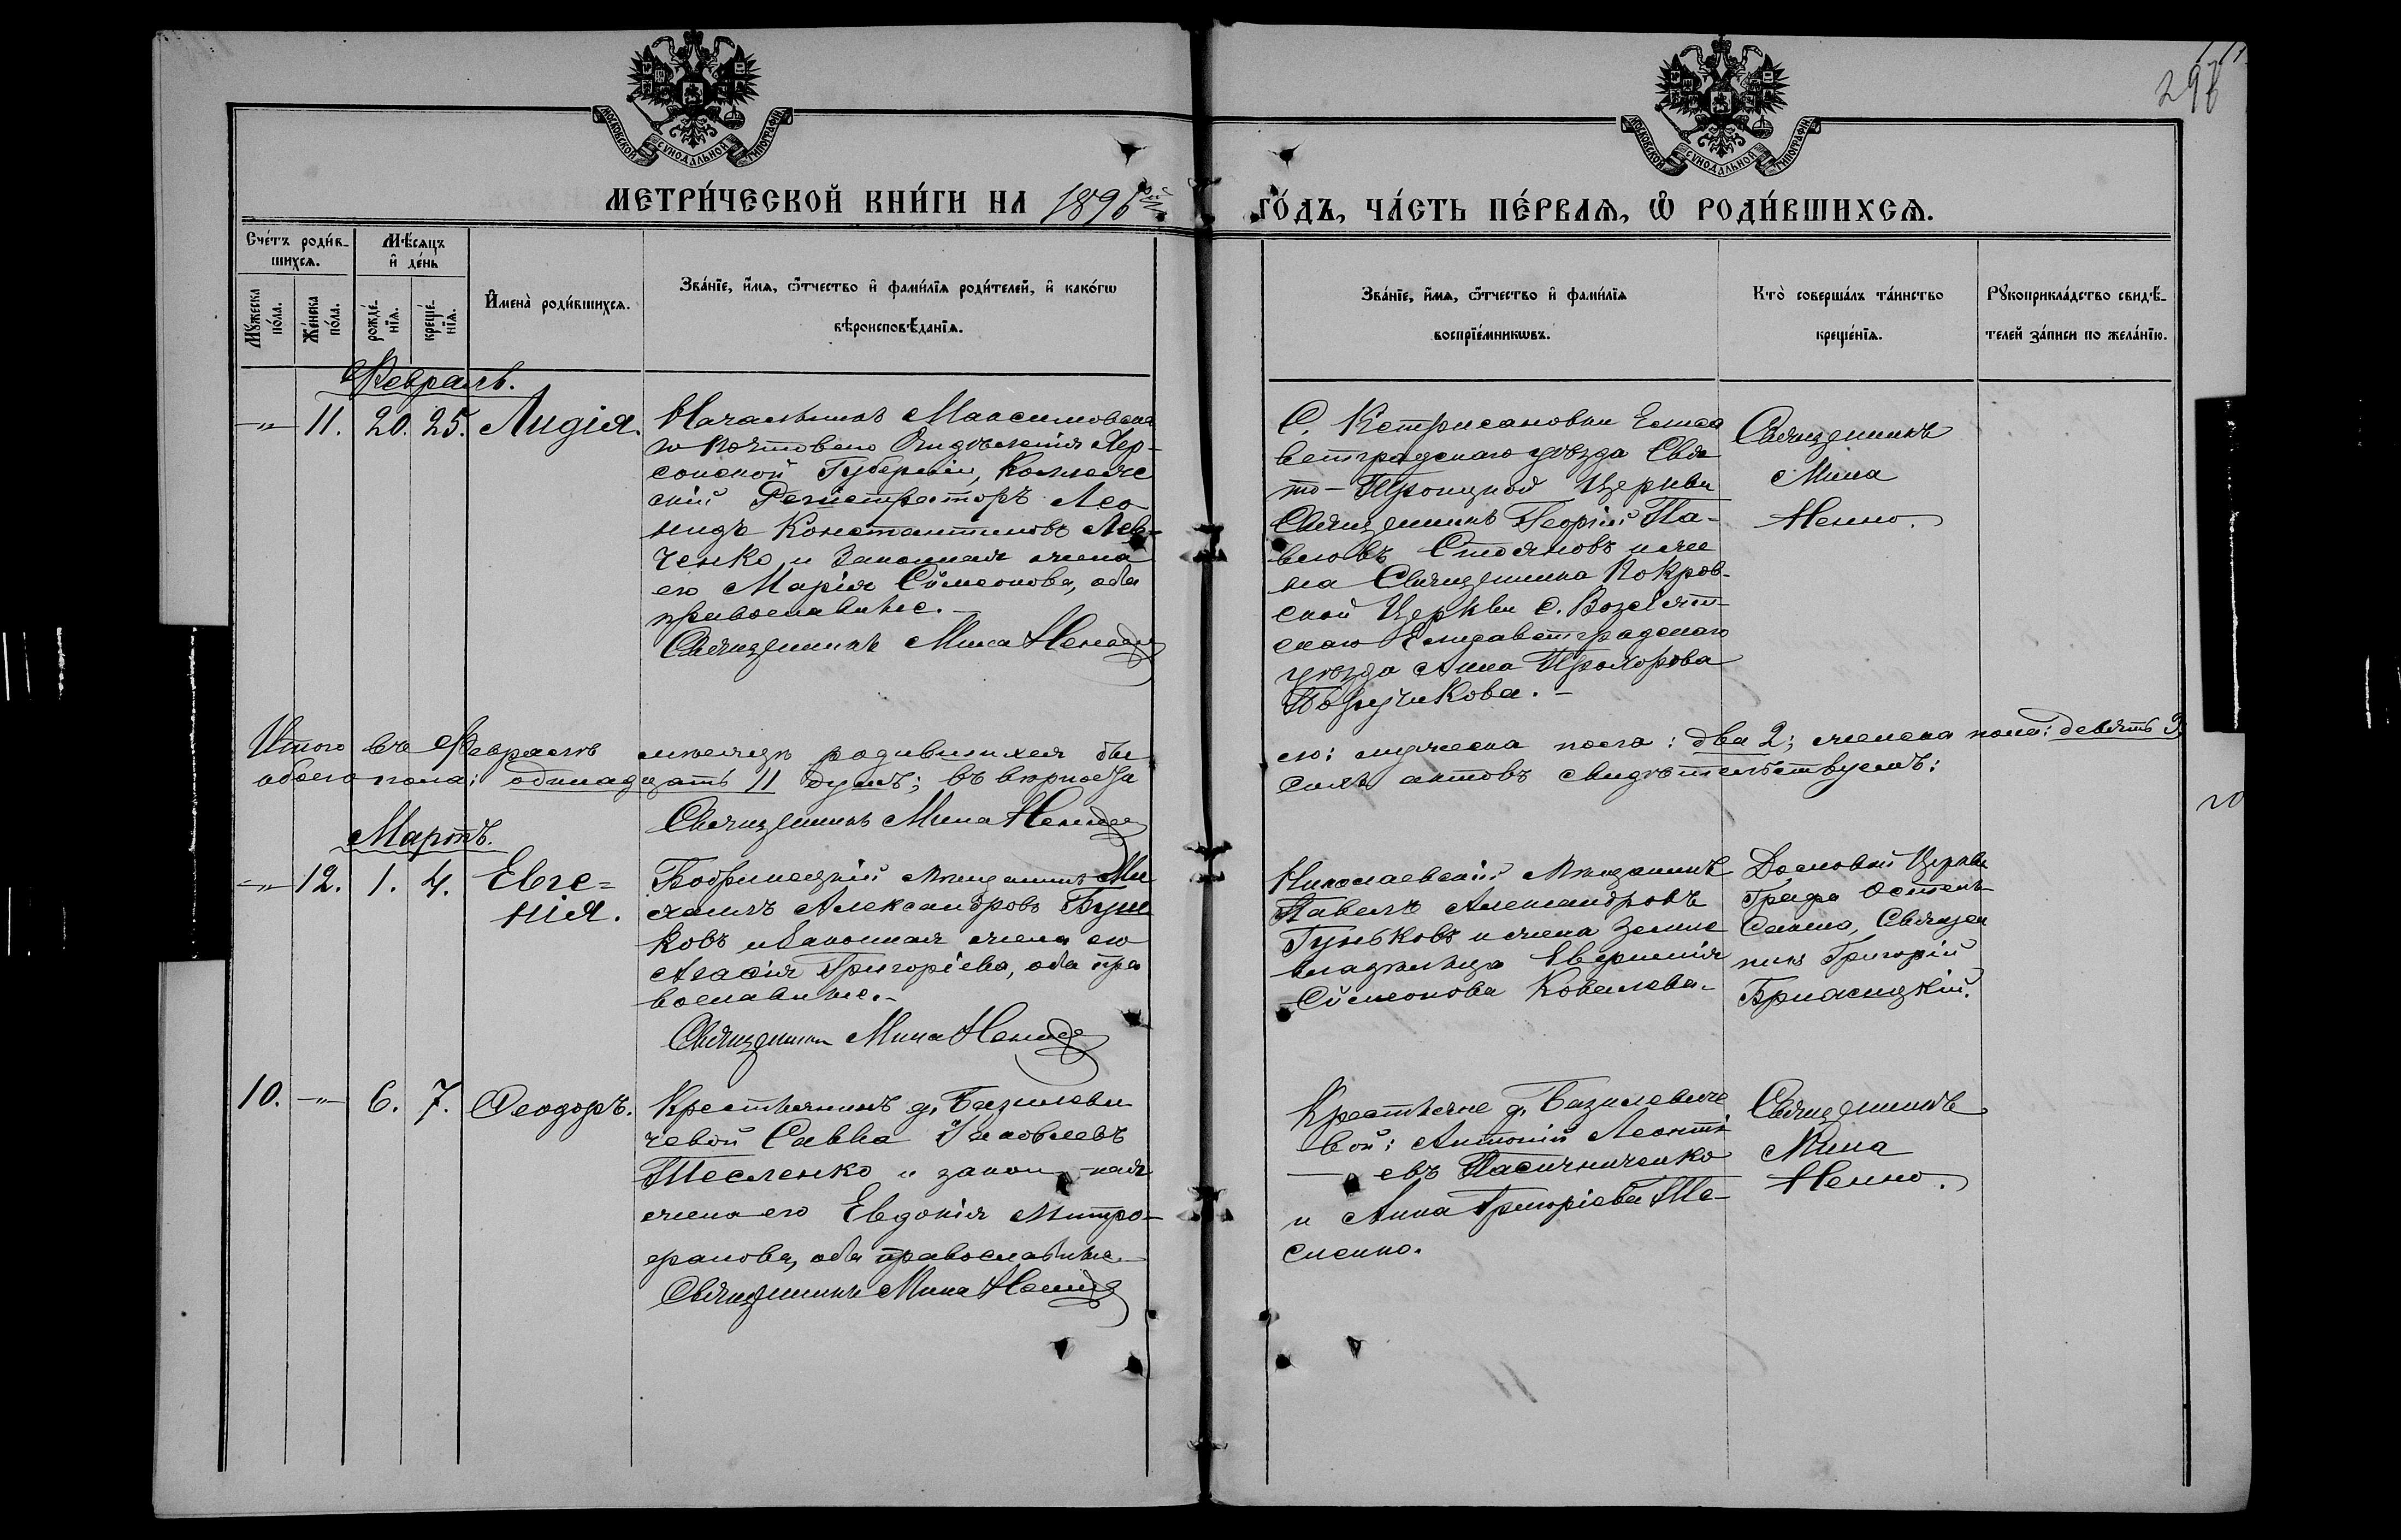 МОСКОВСКОЙ СУНОДАЛЬНОЙ ТИПОГРАФІИ
МОСКОВСКОЙ СУНОДАЛЬНОЙ ТИПОГРАФІИ
МЕТРИ́ЧЕСКОЙ КНИ́ГИ НА 1896ой ГО́ДЪ, ЧА́СТЬ ПЕ́РВАѦ, Ѽ РОДИ́ВШИХСѦ.
Сче́тъ роди́в-
шихсѧ.
Мѣ́сѧцъ
и҆ де́нь
Мꙋ́жеска
по́ла.
Же́нска
по́ла.
рожде́-
нїѧ.
креще́-
нїѧ.
И҆мена̀ роди́вшихсѧ.
Зва́нїе, и҆́мѧ, ѻ҆́тчество и҆ фамѝлїѧ роди́телей, и҆ како́гѡ
вѣроисповѣ́данїѧ.
Зва́нїе, и҆́мѧ, ѻ҆́тчество и҆ фами́лїѧ
воспрїе́мникѡвъ.
Кто̀ соверша́лъ та́инство
креще́нїѧ.
Рꙋкоприкла́дство свидѣ́-
телей за́писи по жела́нїю.
Февраль.
-"- 11. 20. 25. Лидія.
Начальникъ Максимовска
го Почтоваго Отдѣленія Хер-
сонской Губерніи, Коллежс
скій Регистраторъ Лео
нидъ Константиновъ Лев-
ченко и законная жена
его Марія Сѵмеонова, оба
православные.-
Священникъ Мина Ненно
С. Кетрисановки Елиса
ветградскаго уѣзда Свя
то-Троицкой Церкви
Священникъ Георгій Па-
вловъ Стояновъ и же
на Священника Покров-
ской Церкви с. Возсіят-
скаго Елисаветградскаго
уѣзда Анна Прохорова
Поручикова.-
Священникъ
Мина
Ненно.
Итого въ Февралѣ мѣсяцѣ родившихся бы
ло: мужеска пола: два 2; женска пола: девять 9
обоего пола: одинадцать 11 душъ; въ вѣрности
сихъ актовъ свидѣтельствуемъ:
Священникъ Мина Ненно
Мартъ.
-"- 12. 1. 4. Евге=
нія.
Бобринецкій Мѣщанинъ Ми
хаилъ Александровъ
ковъ и законная жена его
Агафія Григорієва, оба пра
вославные.-
Священникъ Мина Ненно
Николаевскій Мѣщанинъ
Павелъ Александровъ
Гуньковъ и жена земле
владѣльца
Сѵмеонова Ковалева.-
Домовой Церкви
Графа Остенъ-
Сакена, Священ
никъ Григорій
10. -"- 6. 7. Ѳеодоръ.
Крестьянинъ д. Базилеви
чевой Савва Іаковлевъ
Тесленко и закон-ная
жена его Евдокія Митро-
фанова, оба православные.-
Священникъ Мина Ненно
Крестьяне д. Базилевиче
вой: Антоній Леонть-
евъ Пасичниченко
и Анна Григорієва Те-
сленко.
Священникъ
Мина
Ненно.